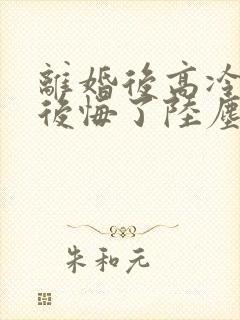 離婚後高冷
後悔了陸塵
朱和元